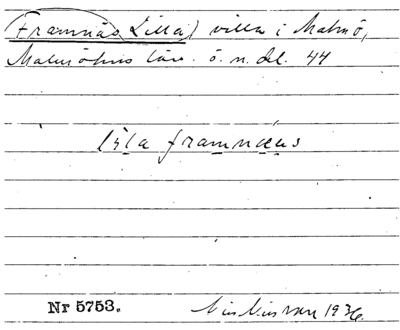 Framnäs (Lilla) villa i Malmö,
Malmöhus län. ö. n. del. 44
lila framnæs
Nr 5753.
1936.